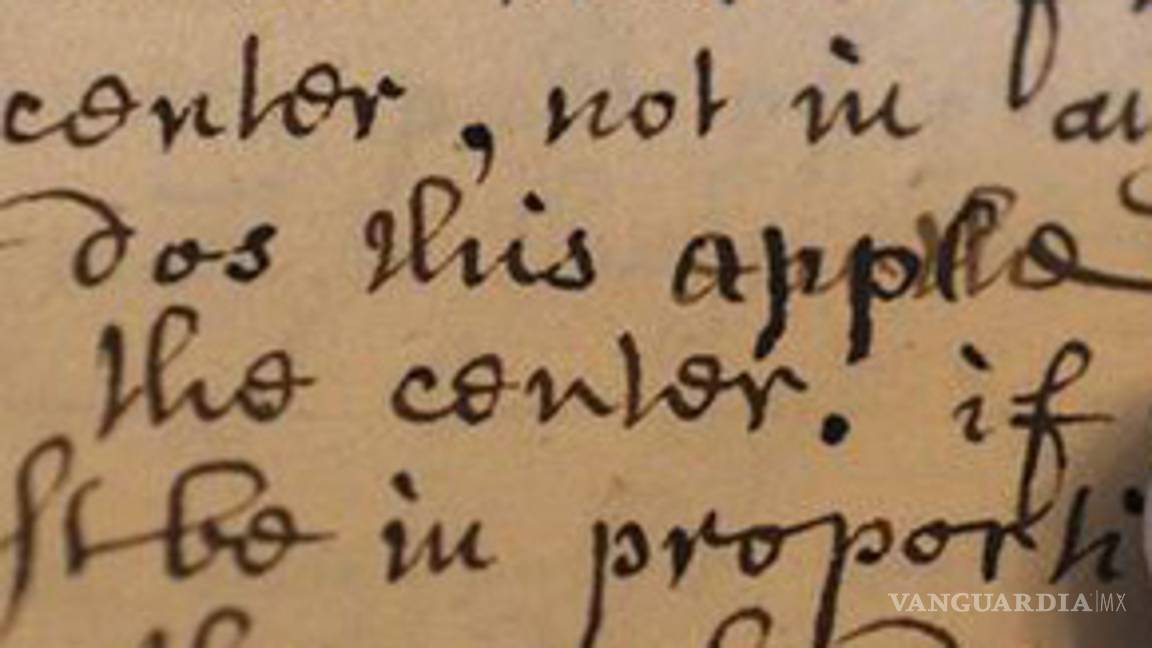 center, not in
dos this apple
the center. if
st be in proporti
VANGUARDIA|MX